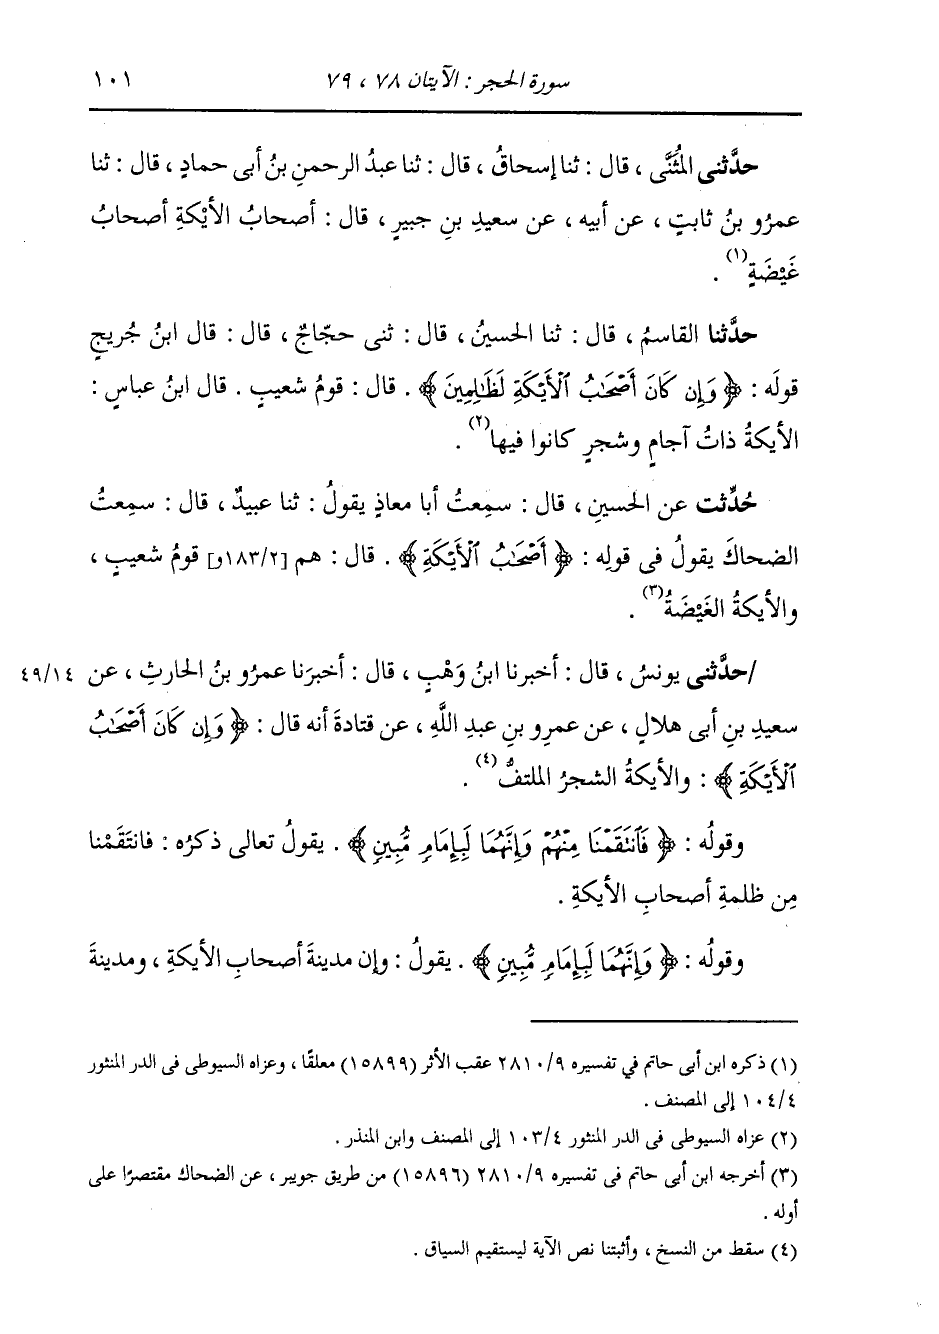 سورة الحجر : الآيتان ٧٨ ، ٧٩ ١٠١
حدَّثنى المُثَنَّى ، قال : ثنا إسحاقُ ، قال : ثنا عبدُ الرحمنِ بنُ أبى حمادٍ ، قال : ثنا
عمرُو بنُ ثابتٍ ، عن أبيه ، عن سعيدِ بنِ جبيرٍ ، قال : أصحابُ الأيْكةِ أصحابُ
غَيْضَةٍ(١) .
حدَّثنا القاسمُ ، قال : ثنا الحسينُ ، قال : ثنى حجّاجٌ ، قال : قال ابنُ جُريجٍ
قولَه : ﴿ وَإِن كَانَ أَصْحَٰبُ ٱلْأَيْكَةِ لَظَٰلِمِينَ ﴾ . قال : قومُ شعيبٍ . قال ابنُ عباسٍ :
الأيكةُ ذاتُ آجامٍ وشجرٍ كانوا فيها(٢) .
حُدِّثت عن الحسينِ ، قال : سمِعتُ أبا معاذٍ يقولُ : ثنا عبيدٌ ، قال : سمِعتُ
الضحاكَ يقولُ فى قولِه : ﴿ أَصْحَٰبُ ٱلْأَيْكَةِ ﴾ . قال : هم [١٨٣/٢و] قومُ شعيبٍ ،
والأيكةُ الغَيْضَةُ(٣) .
/حدَّثنى يونسُ ، قال : أخبرنا ابنُ وَهْبٍ ، قال : أخبرَنا عمرُو بنُ الحارثِ ، عن ٤٩/١٤
سعيدِ بنِ أبى هلالٍ ، عن عمرِو بنِ عبدِ اللَّهِ ، عن قتادةَ أنه قال : ﴿ وَإِن كَانَ أَصْحَٰبُ
ٱلْأَيْكَةِ ﴾ : والأيكةُ الشجرُ الملتفُّ(٤) .
وقولُه : ﴿ فَٱنتَقَمْنَا مِنْهُمْ وَإِنَّهُمَا لَبِإِمَامٍ مُّبِينٍ ﴾ . يقولُ تعالى ذكرُه : فانتَقَمْنا
مِن ظلمةِ أصحابِ الأيكةِ .
وقولُه : ﴿ وَإِنَّهُمَا لَبِإِمَامٍ مُّبِينٍ ﴾ . يقولُ : وإن مدينةَ أصحابِ الأيكةِ ، ومدينةَ
(١) ذكره ابن أبى حاتم في تفسيره ٢٨١٠/٩ عقب الأثر (١٥٨٩٩) معلقًا ، وعزاه السيوطى فى الدر المنثور
١٠٤/٤ إلى المصنف .
(٢) عزاه السيوطى فى الدر المنثور ١٠٣/٤ إلى المصنف وابن المنذر .
(٣) أخرجه ابن أبى حاتم فى تفسيره ٢٨١٠/٩ (١٥٨٩٦) من طريق جويبر ، عن الضحاك مقتصرًا على
أوله .
(٤) سقط من النسخ ، وأثبتنا نص الآية ليستقيم السياق .